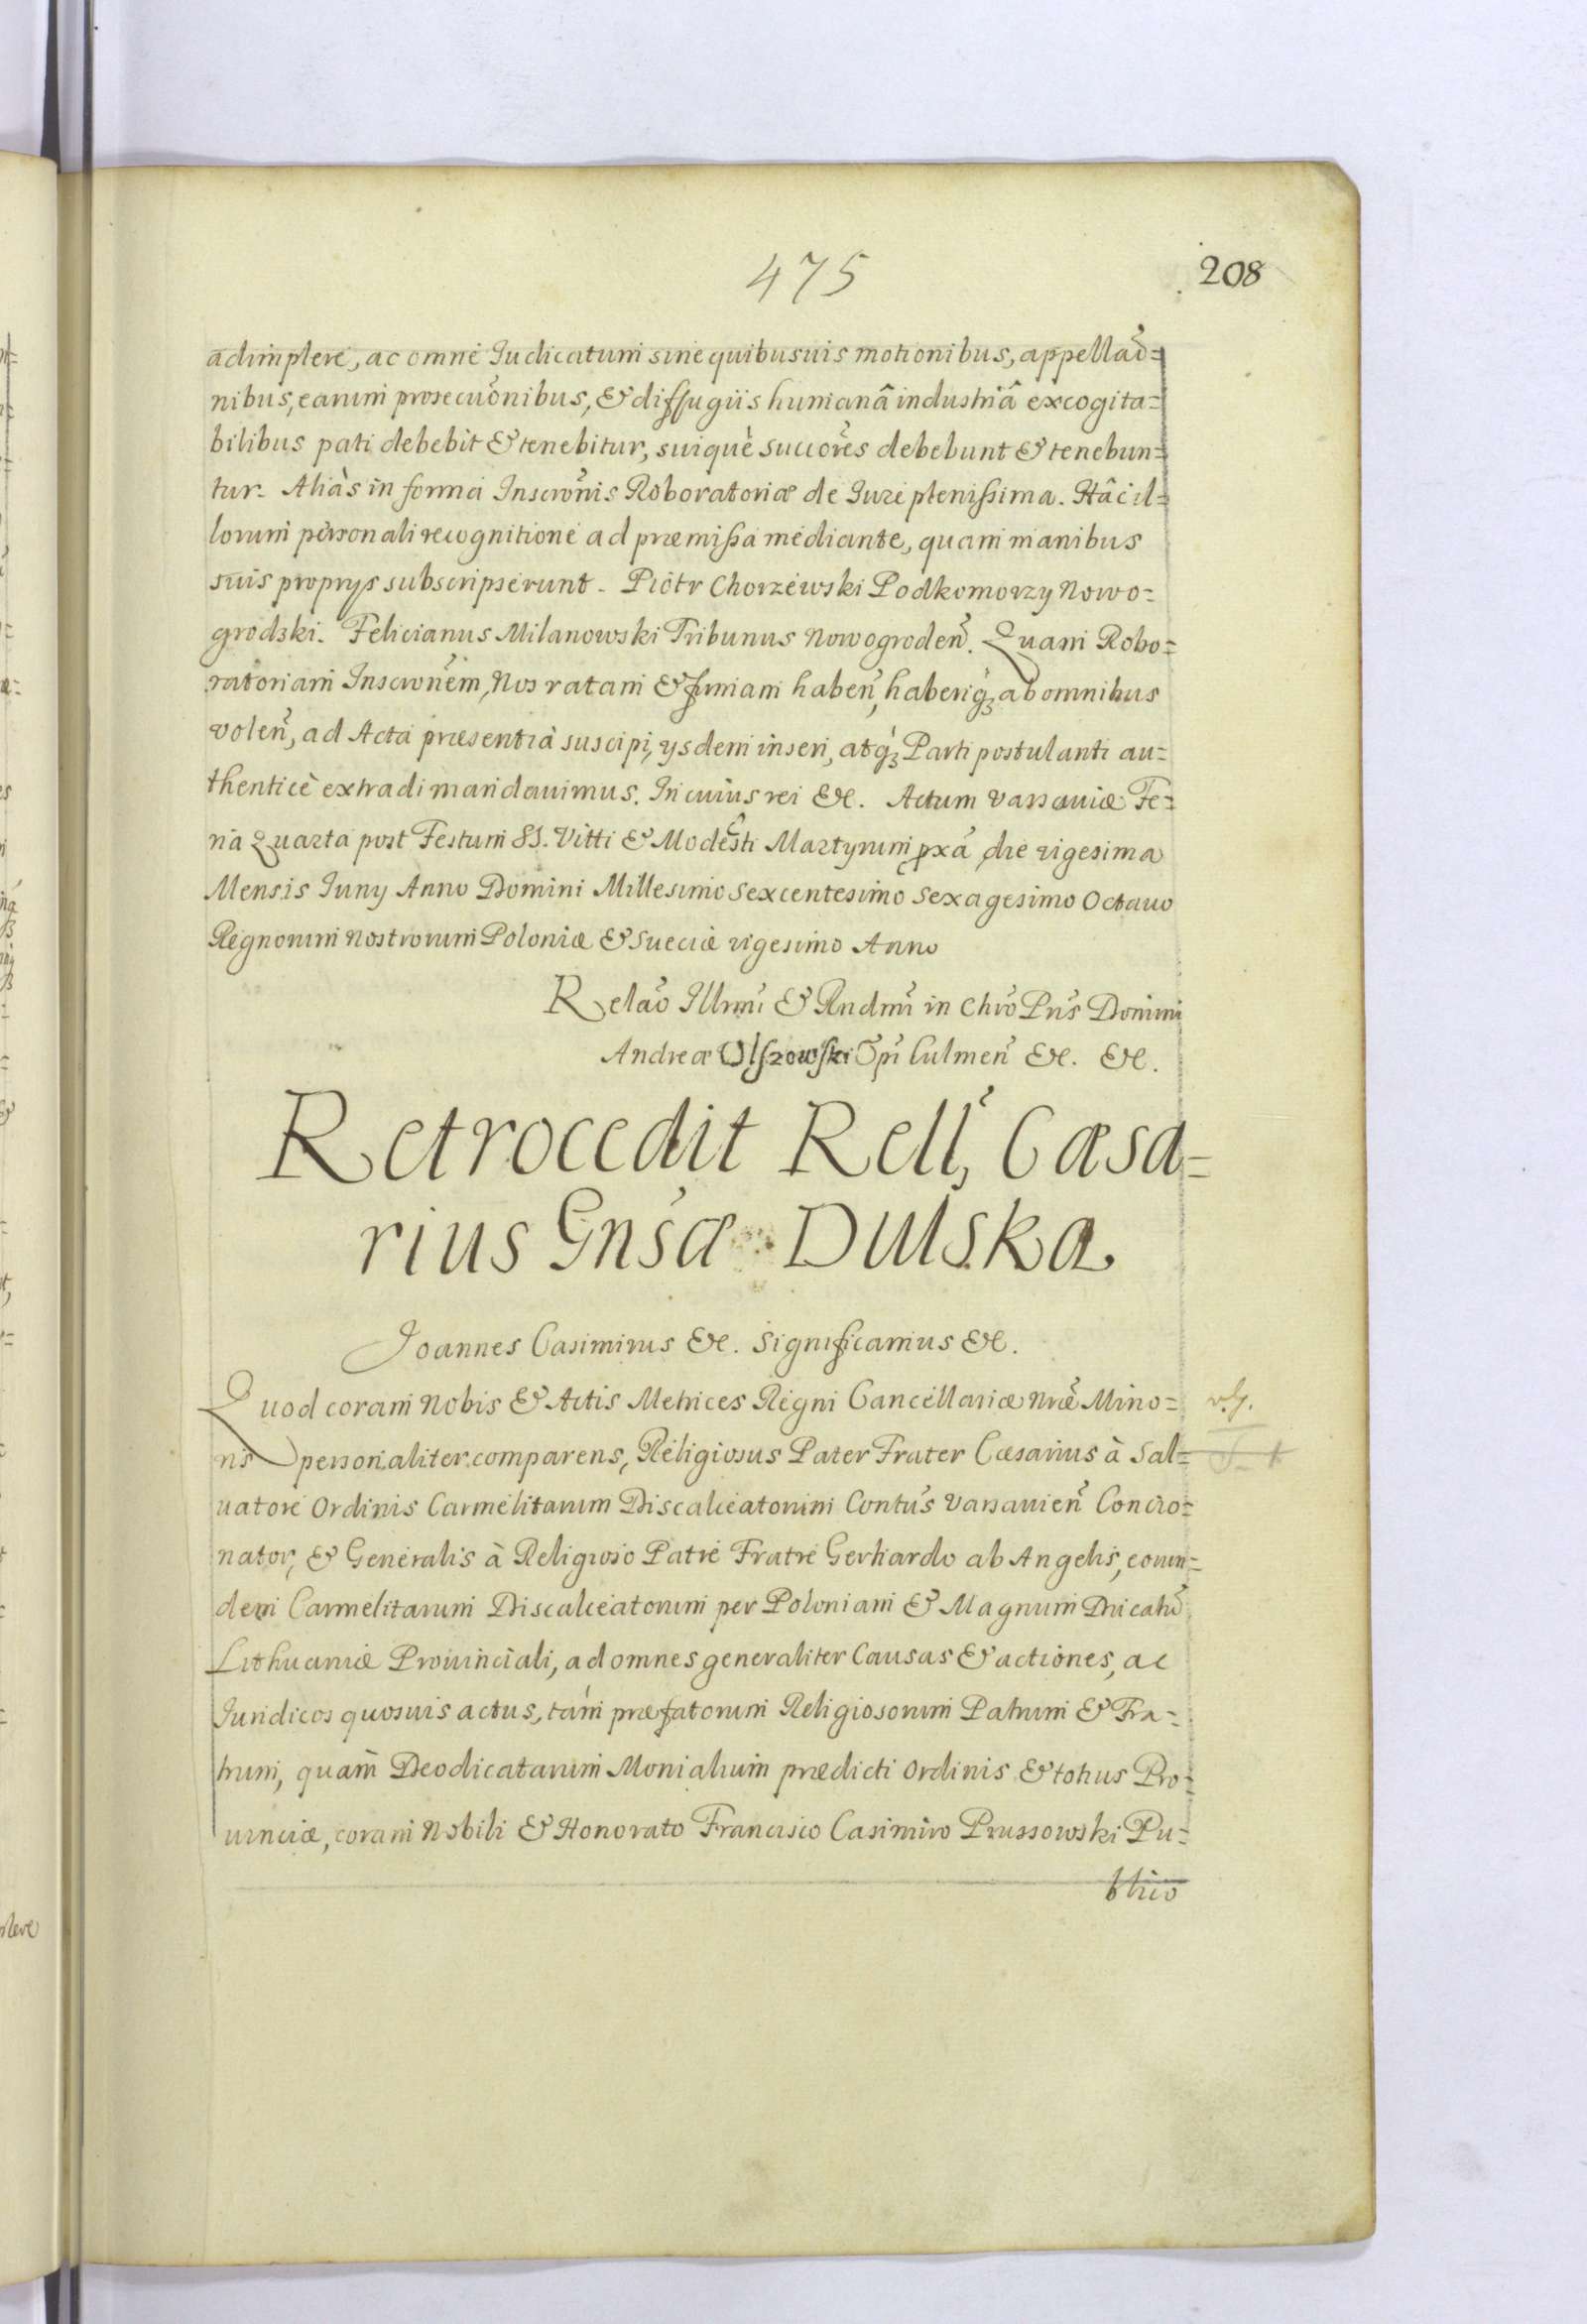 475
208
adimplere, ac omne Iudicatum sine quibusuis motionibus, appellaõ=
nibus, earum prosecuõnibus, & diffugiis humanâ industriâ excogita=
bilibus pati debebit & tenebitur, suiquè succor̃es debebunt & tenebun=
tur. Aliàs in forma Inscrõnis Roboratoriæ de Iure plenissima. Hâc il=
lorum personali recognitione ad præmissa mediante, quam manibus
suis proprys subscripserunt. Piotr Chorzewski Podkomorzy Nowo=
grodzki. Felicianus Milanowski Tribunus Nowogroden̄. Quam Robo=
ratoriam Inscrõnem, Nos ratam & firmam haben̄, haberiq́ʒ ab omnibus
volen̄, ad Acta præsentia suscipi, ysdem inseri, atq́ʒ Parti postulanti au=
thenticè extradi mandauimus. In cuius rei &c. Actum Varsauiæ Fe=
ria Quarta post Festum SS. Vitti & Modesti Martyrum p̱xã die vigesima
Mensis Iuny Anno Domini Millesimo Sexcentesimo Sexagesimo Octauo
Regnorum nostrorum Poloniæ & Sueciæ vigesimo Anno
Relaõ Illmĩ & Rndmĩ in Chrõ Prĩs Domini
Andreæ Olszowski Epĩ Culmen̄ &c. &c.
Retrocedit Rell, Cæsa=
rius Gnsæ Dulska
Joannes Casimirus &c. Significamus &c.
Quod coram Nobis & Actis Metrices Regni Cancellariæ nræ̃ Mino=
ris personaliter comparens, Religiosus Pater Frater Cæsarius à Sal=
uatore Ordinis Carmelitarum Discalceatorum Contũs Varsauien̄ Concio=
nator, & Generalis à Religioso Patre Fratre Gerhardo ab Angelis, eorun=
dem Carmelitarum Discalceatorum per Poloniam & Magnum Ducatũ
Lithuaniæ Prouinciali, ad omnes generaliter Causas & actiones, ac
Iuridicos quosuis actus, tám præfatorum Religiosorum Patrum & Fra=
trum, quàm Deodicatarum Monialium prædicti Ordinis & totius Pro=
uinciæ, coram Nobili & Honorato Francisco Casimiro Prussowski Pu=
blico